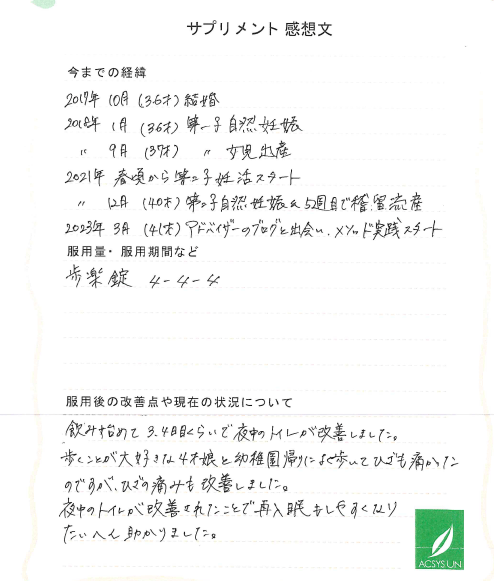 サプリメント 感想文
今までの経緯
2017年 10月 (36才) 結婚
2018年 1月 (36才) 第一子自然妊娠
〃 9月 (37才) 〃 女児出産
2021年 春頃から第二子妊活スタート
〃 12月 (40才) 第二子自然妊娠も5週目で稽留流産
2023年 3月 (41才) アドバイザーのブログと出会い、メソッド実践スタート
服用量・服用期間など
歩楽錠 4-4-4
服用後の改善点や現在の状況について
飲み始めて3.4日目くらいで夜中のトイレが改善しました。
歩くことが大好きな4才娘と幼稚園帰りによく歩いてひざも痛かった
のですが、ひざの痛みも改善しました。
夜中のトイレが改善されたことで再入眠もしやすくなり
たいへん助かりました。
ACSYS UN